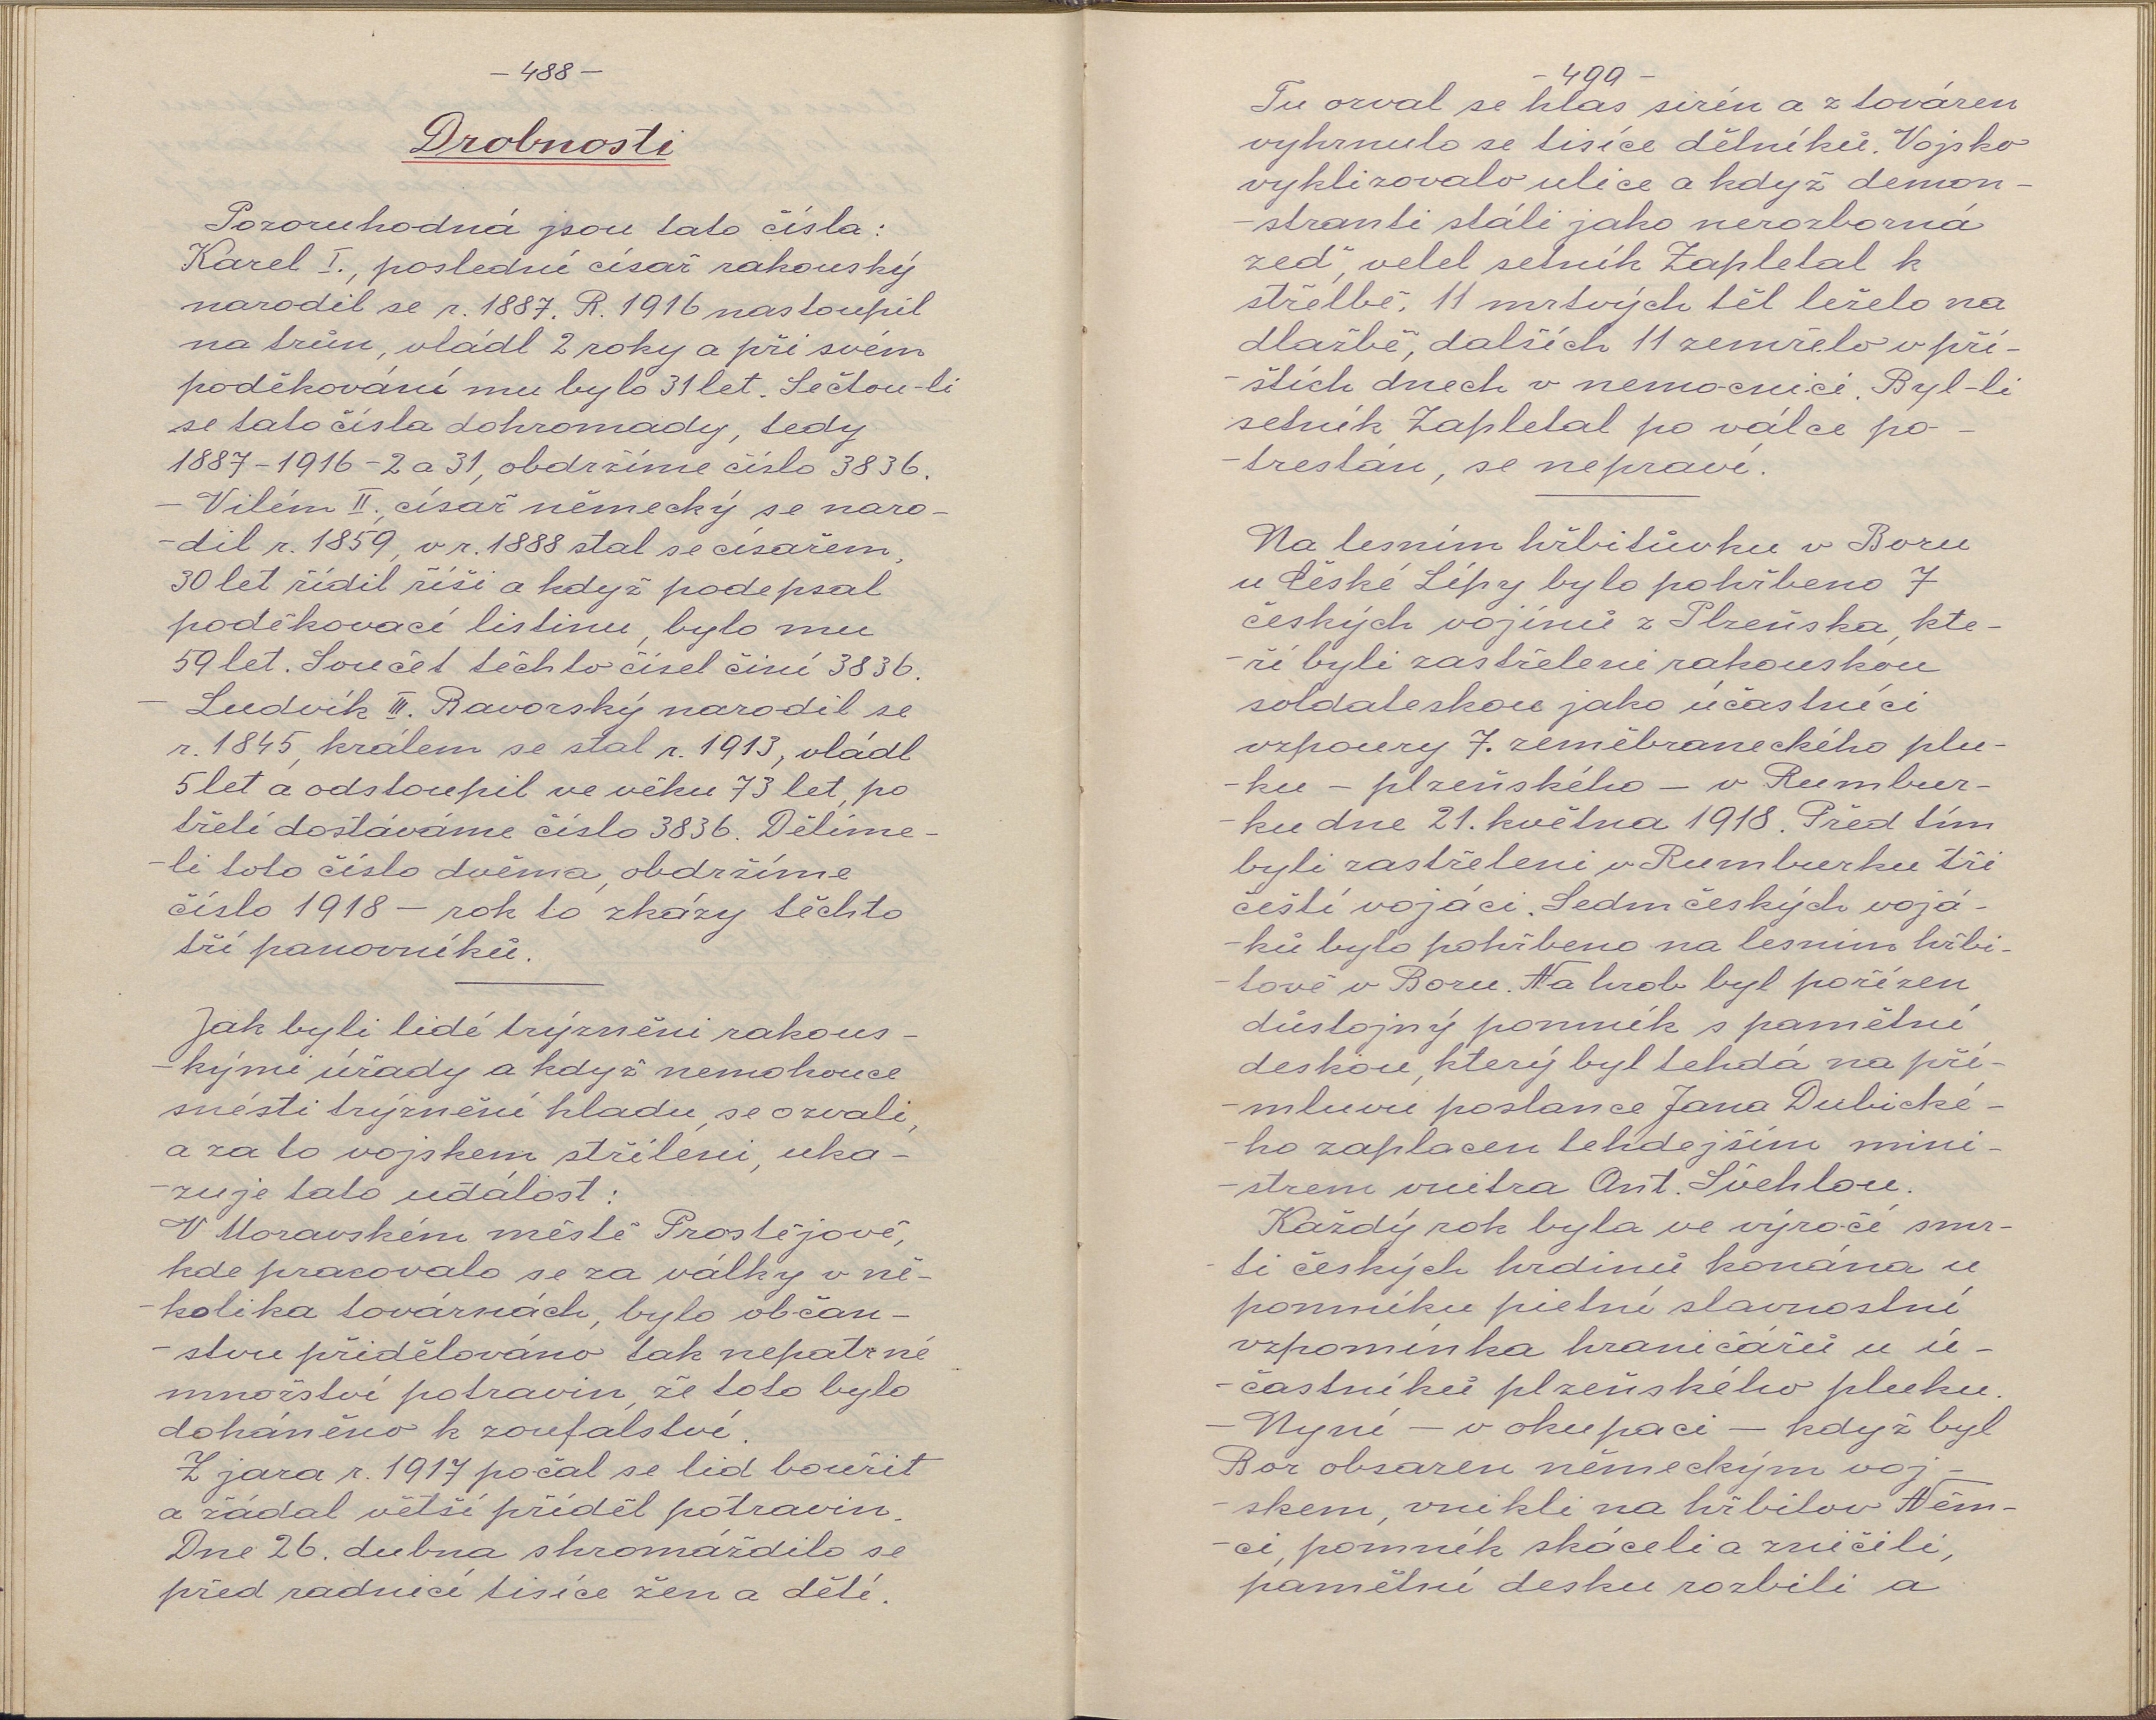 - 488 -
Drobnosti
Pozoruhodná jsou tato čísla:
Karel I., poslední císař rakouský
narodil se r. 1887. R. 1916 nastoupil
na trůn, vládl 2 roky a při svém
poděkování mu bylo 31 let. Sečtou-li
se tato čísla dohromady, tedy
1887-1916-2 a 31, obdržíme číslo 3836.
- Vilém II., císař německý se naro-
-dil r. 1859, v r. 1888 stal se císařem,
30 let řídil říši a když podepsal
poděkovací listinu, bylo mu
59 let. Součet těchto čísel činí 3836.
- Ludvík III. Bavorský narodil se
r. 1845, králem se stal r. 1913, vládl
5 let a odstoupil ve věku 73 let, po
třetí dostáváme číslo 3836. Dělíme-
-li toto číslo dvěma, obdržíme
číslo 1918 - rok to zkázy těchto
tří panovníků.
Jak byli lidé trýzněni rakous-
-kými úřady a když nemohouce
snésti trýznění hladu, se ozvali,
a za to vojskem stříleni, uka-
-zuje tato událost:
V Moravském městě Prostějově,
kde pracovalo se za války v ně-
-kolika továrnách, bylo občan-
-stvu přidělováno tak nepatrné
množství potravin, že toto bylo
doháněno k zoufalství.
Z jara r. 1917 počal se lid bouřit
a žádal větší příděl potravin.
Dne 26. dubna shromáždilo se
před radnicí tisíce žen a dětí.
- 499 -
Tu ozval se hlas sirén a z továren
vyhrnulo se tisíce dělníků. Vojsko
vyklizovalo ulice a když demon-
-stranti stáli jako nerozborná
zeď, velel setník Zapletal k
střelbě. 11 mrtvých těl leželo na
dlažbě, dalších 11 zemřelo v pří-
-štích dnech v nemocnici. Byl-li
setník Zapletal po válce po-
-trestán, se nepraví.
Na lesním hřbitůvku v Boru
u České Lípy bylo pohřbeno 7
českých vojínů z Plzeňska, kte-
-ří byli zastřeleni rakouskou
soldateskou jako účastníci
vzpoury 7. zeměbraneckého plu-
-ku - plzeňského - v Rumbur-
-ku dne 21. května 1918. Před tím
byli zastřeleni v Rumburku tři
čeští vojáci. Sedm českých vojá-
-ků bylo pohřbeno na lesním hřbi-
-tově v Boru. Na hrob byl pořízen
důstojný pomník s pamětní
deskou, který byl tehdá na pří-
-mluvu poslance Jana Dubické-
-ho zaplacen tehdejším mini-
-strem vnitra Ant. Švehlou.
Každý rok byla ve výročí smr-
-ti českých hrdinů konána u
pomníku pietní slavnostní
vzpomínka hraničářů u ú-
-častníků plzeňského pluku.
- Nyní - v okupaci - když byl
Bor obsazen německým voj-
-skem, vnikli na hřbitov Něm-
-ci, pomník skáceli a zničili,
pamětní desku rozbili a